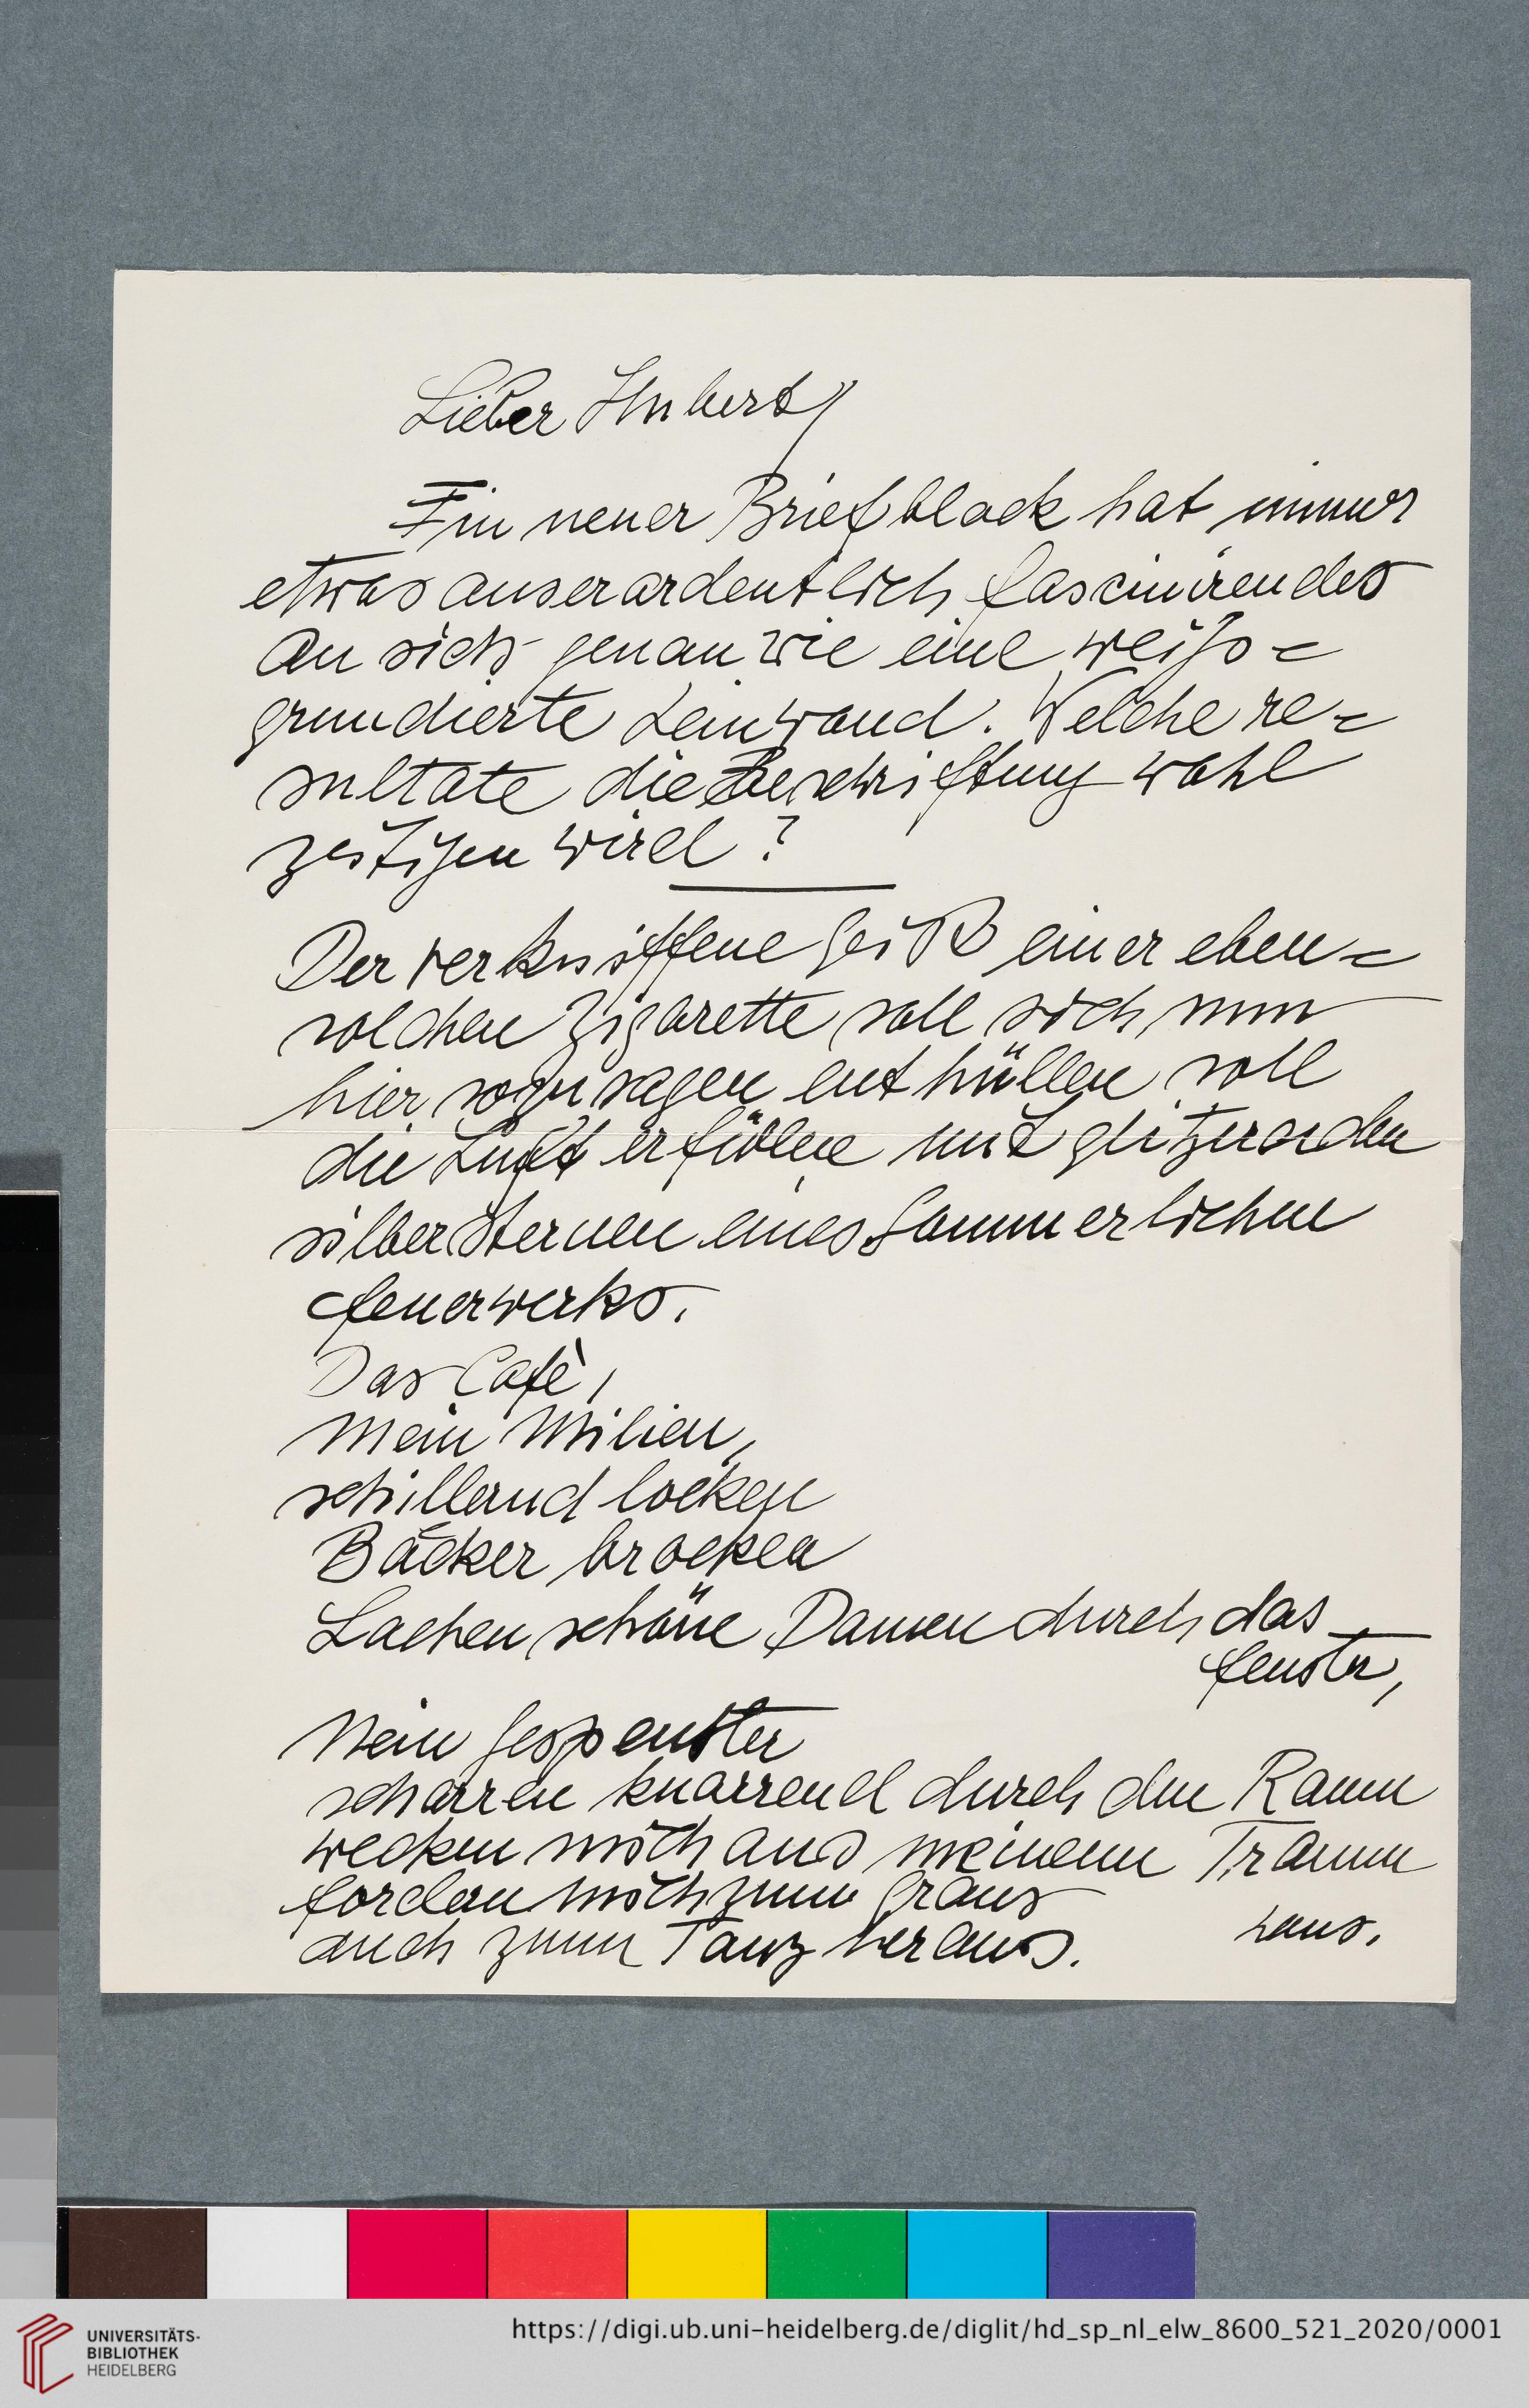 Lieber Hubert,
Ein neuer Briefblock hat immer
etwas auserordentlich fascinirendes
an sich genau wie eine weiss-
grundierte Leinwand. Welche re-
sultate die Beschriftung wohl
zeitigen wird?
Der verkniffene Geiß einer eben-
solchen Zigarette soll sich nun
hier sozusagen enthüllen soll
die Luft erfüllen mit glitzernden
silber Sternen eines Sommerlichen
feuerwerks.
Das Cafè,
Mein Milieu,
schillernd locken
Bäcker brocken
Lachen schöne Damen durch das
fenster,
Nein Gespenster
scharren knarrend durch den Raum
wecken mich aus meinem Traum
fordern mich zum Graus
auch zum Tanz heraus.
Hans.
UNIVERSITÄTS-
BIBLIOTHEK
HEIDELBERG
https://digi.ub.uni-heidelberg.de/diglit/hd_sp_nl_elw_8600_521_2020/0001